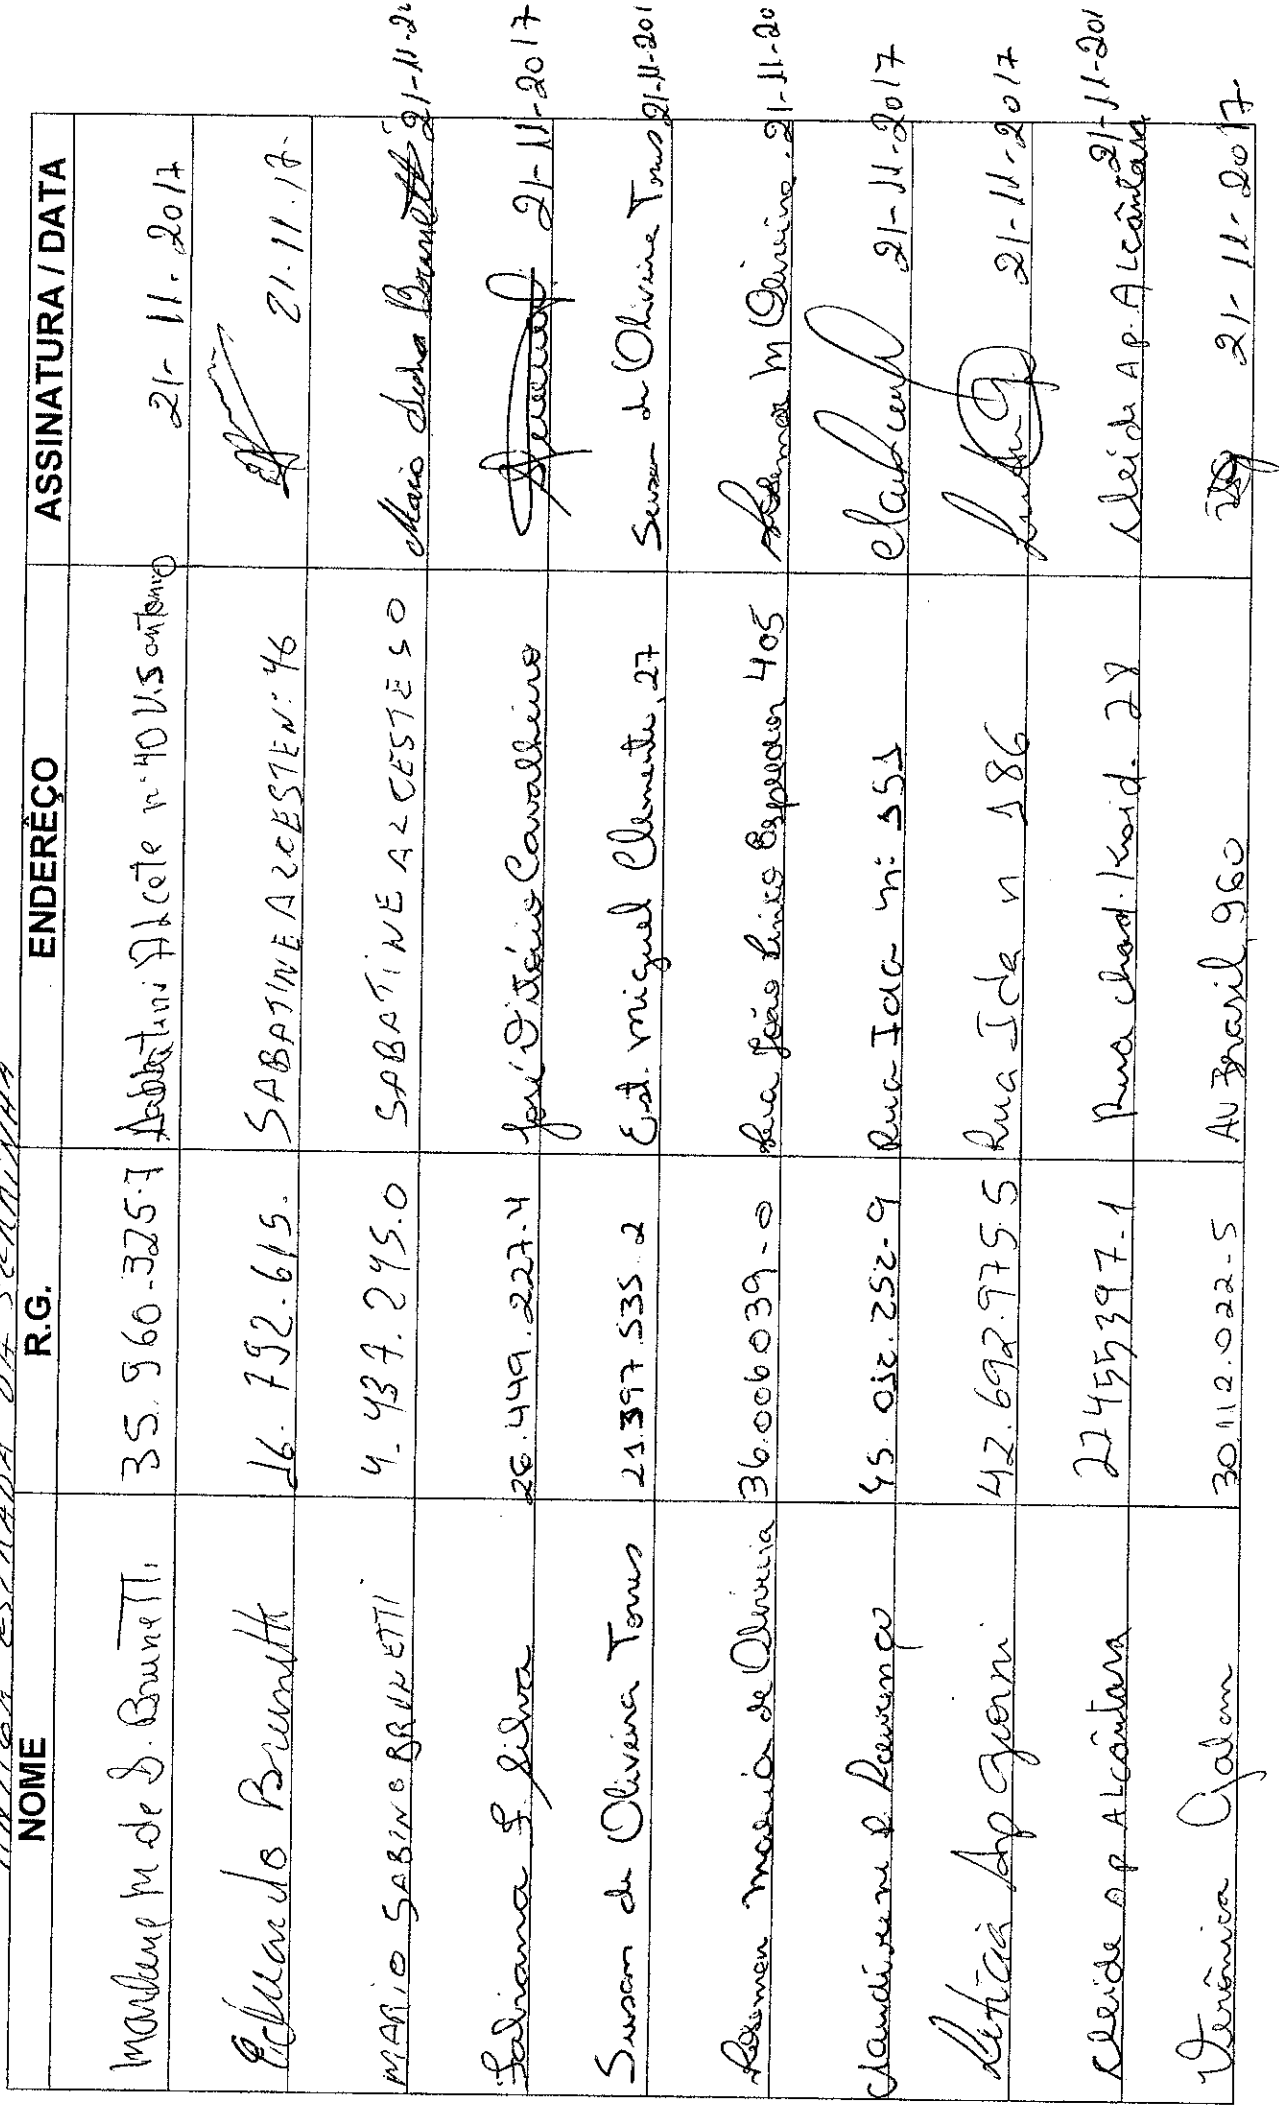 ESTRADA DA
NOME R.G. ENDERÊÇO ASSINATURA / DATA
Marlene M de S. Brunetti 35.960.325-7 Sabbatini Alceste nº 40 V. Santonio 21-11-2017
Eduardo Brunetti 16.792.615. SABATINE ALCESTE N: 46 21.11.17.
MARIO SABINO BRUNETTI 4.437.245.0 SABATINE ALCESTE 50 Mario Brunetti 21-11-20
Fabiana F. Silva 26.449.227-4 José Vitório Cavalheiro 21-11-2017
Susan de Oliveira Torres 21.397.535.2 Est. Miguel Clemente, 27 Susan de Oliveira Torres 21-11-201
Rosemar Maria de Oliveira 36.006039-0 Rua João Lino 405 Rosemar M Oliveira 21-11-20
Claudirene R. 45.052.252-9 Rua Ida n: 351 21-11-2017
Letícia Ap Giorni 42.692.975.5 Rua Ida n 186 21-11-2017
Cleide Ap Alcântara 22455397-1 Rua 28 Cleide Ap. Alcântara 21-11-201
Verônica Galam 30.112.022-5 AV Brasil, 960 21-11-2017.